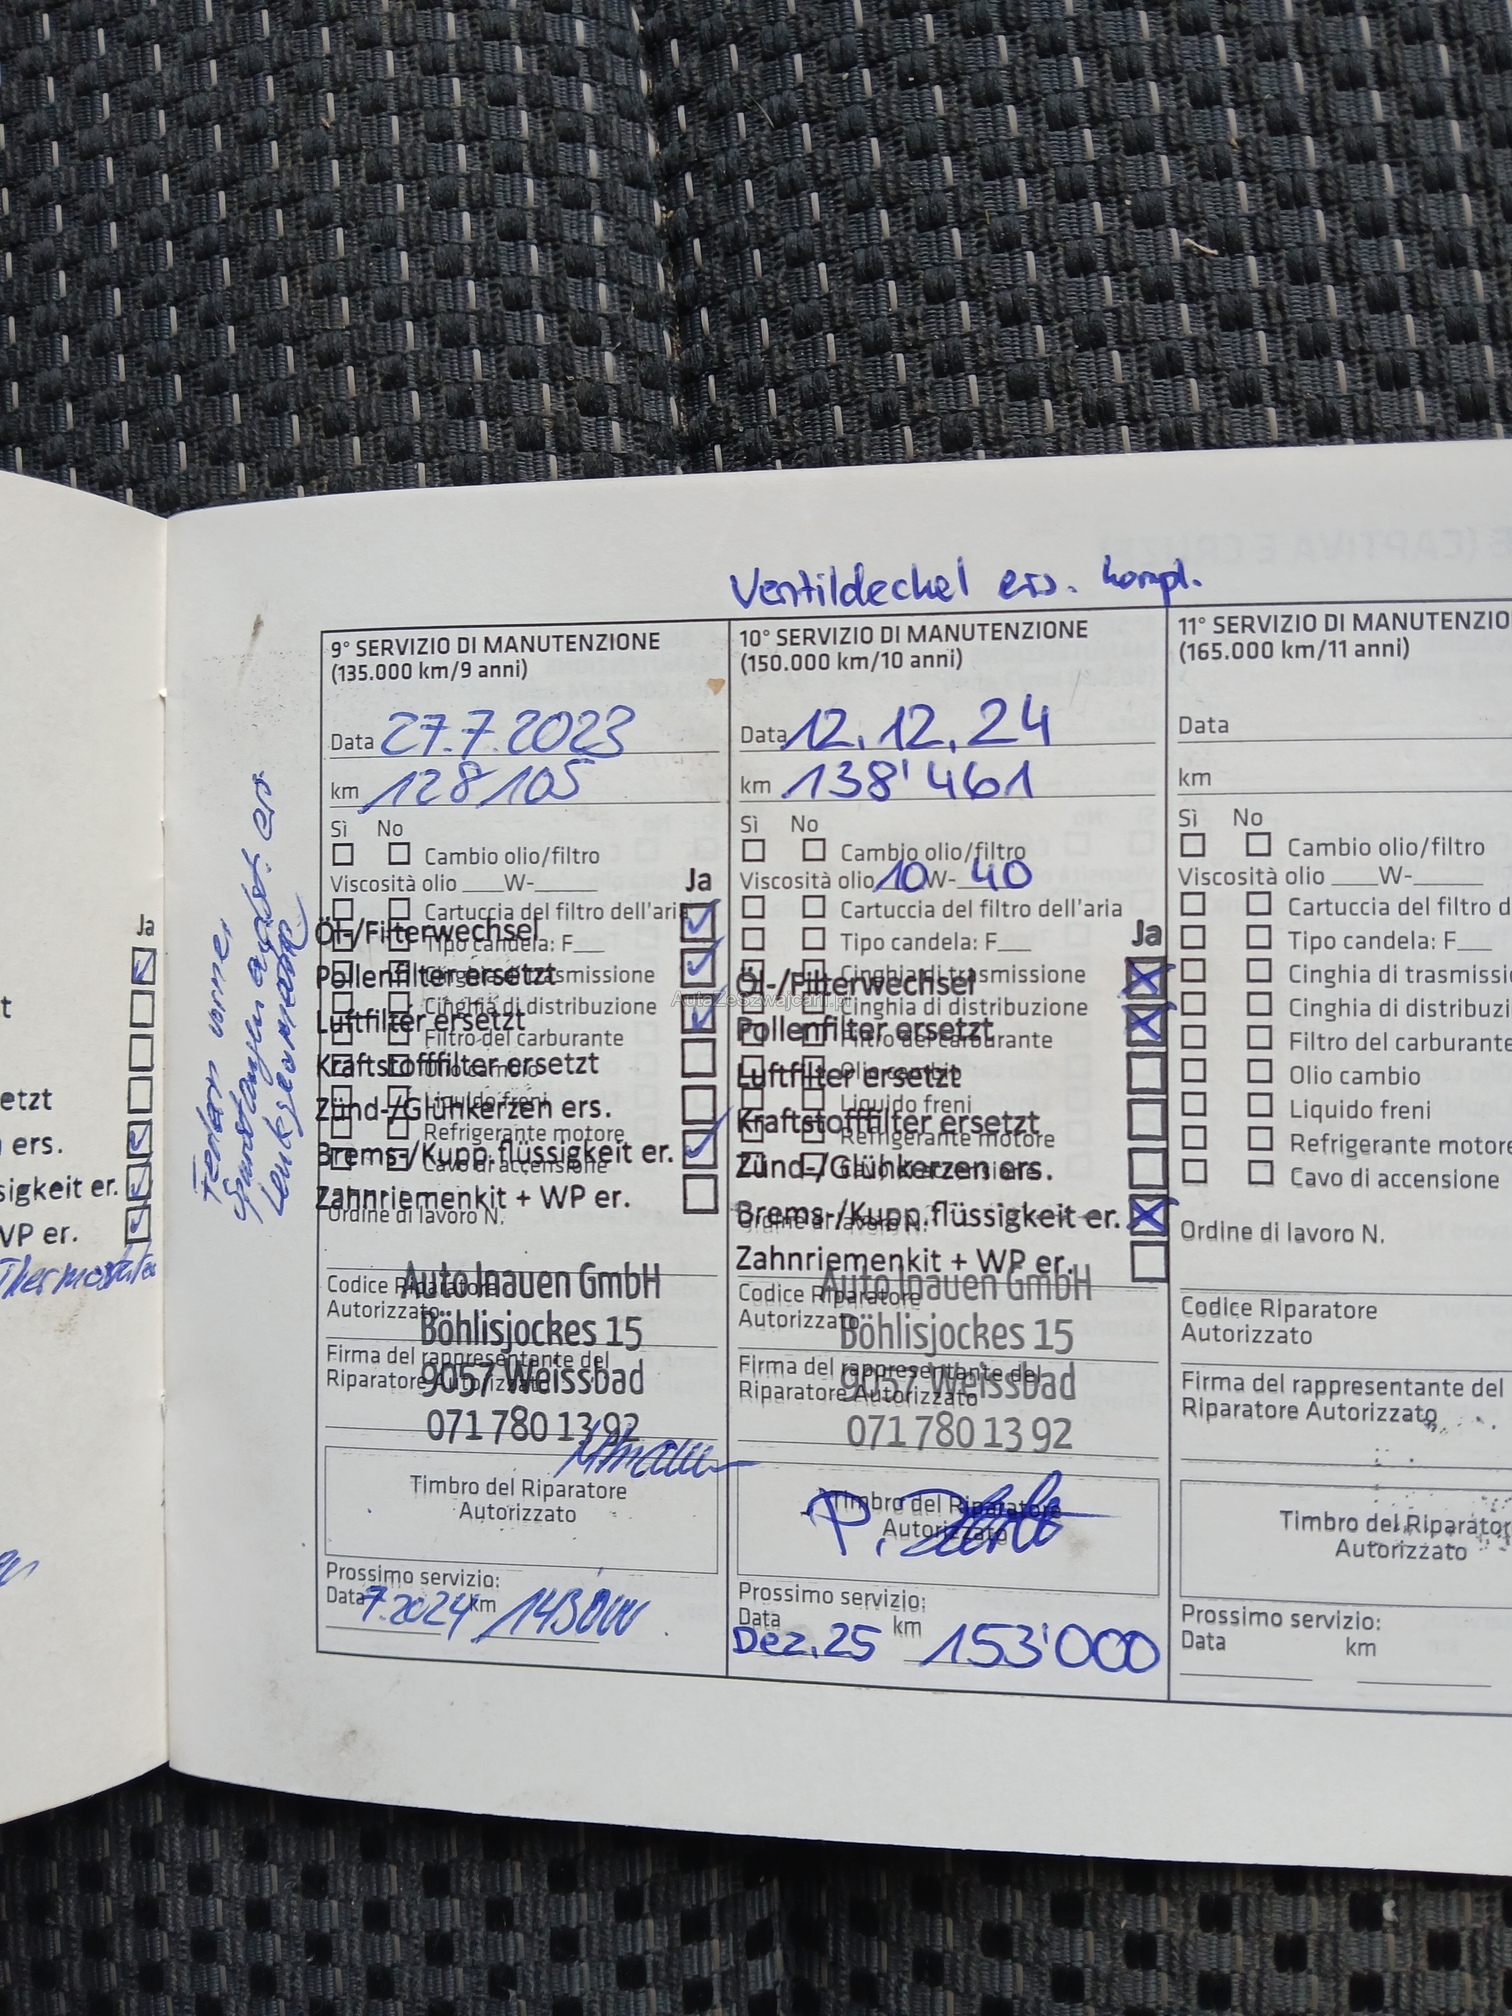 Ja
t
etzt
ers.
sigkeit er.
VP er.
Thermostat
Federn vorne,
Ventildeckel ers. kompl.
9° SERVIZIO DI MANUTENZIONE
(135.000 km/9 anni)
Data 27.7.2023
km 128105
Sì No
Cambio olio/filtro
Viscosità olio ___W-_____
Ja
Cartuccia del filtro dell'aria
Öl-/Filterwechsel
Tipo candela: F__
Pollenfilter ersetzt
Cinghia di trasmissione
Cinghia di distribuzione
Luftfilter ersetzt
Filtro del carburante
Kraftstofffilter ersetzt
Olio cambio
Liquido freni
Zünd-/Glühkerzen ers.
Refrigerante motore
Brems-/Kupp.flüssigkeit er.
Cavo di accensione
Zahnriemenkit + WP er.
Ordine di lavoro N.
Auto Inauen GmbH
Codice Riparatore
Autorizzato
Böhlisjockes 15
Firma del rappresentante del
Riparatore Autorizzato
9057 Weissbad
071 780 13 92
Timbro del Riparatore
Autorizzato
Prossimo servizio:
Data 7.2024 km 143000
10° SERVIZIO DI MANUTENZIONE
(150.000 km/10 anni)
Data 12.12.24
km 138'461
Sì No
Cambio olio/filtro
Viscosità olio 10 W- 40
Cartuccia del filtro dell'aria
Tipo candela: F__
Ja
Cinghia di trasmissione
Öl-/Filterwechsel
Cinghia di distribuzione
Pollenfilter ersetzt
Filtro del carburante
Luftfilter ersetzt
Olio cambio
Liquido freni
Kraftstofffilter ersetzt
Refrigerante motore
Zünd-/Glühkerzen ers.
Cavo di accensione
Brems-/Kupp.flüssigkeit er.
Ordine di lavoro N.
Zahnriemenkit + WP er.
Auto Inauen GmbH
Codice Riparatore
Autorizzato
Böhlisjockes 15
Firma del rappresentante del
Riparatore Autorizzato
9057 Weissbad
071 780 13 92
Timbro del Riparatore
Autorizzato
Prossimo servizio:
Data km
Dez. 25 153'000
11° SERVIZIO DI MANUTENZIO
(165.000 km/11 anni)
Data
km
Sì No
Cambio olio/filtro
Viscosità olio ___W-_____
Cartuccia del filtro d
Tipo candela: F__
Cinghia di trasmissi
Cinghia di distribuzi
Filtro del carburante
Olio cambio
Liquido freni
Refrigerante motore
Cavo di accensione
Ordine di lavoro N.
Codice Riparatore
Autorizzato
Firma del rappresentante del
Riparatore Autorizzato
Timbro del Riparator
Autorizzato
Prossimo servizio:
Data km
AutaZeSzwajcarii.pl